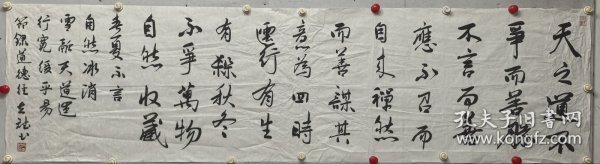 天之道不
争而善勝
不言而善
應不召而
自来禪然
而善謀其
意為四時
運行有生
有殺秋冬
不爭萬物
自然收藏
春夏不言
自然冰消
雪融天道運
行寬緩平易
節錄道德经
孔夫子旧书网
www.kongfz.com